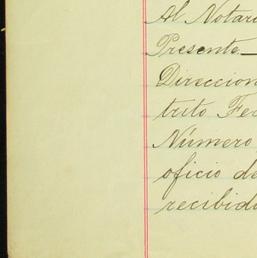 Al Notari
Presente_
Direccion
trito Fed
Número
oficio de
recibida